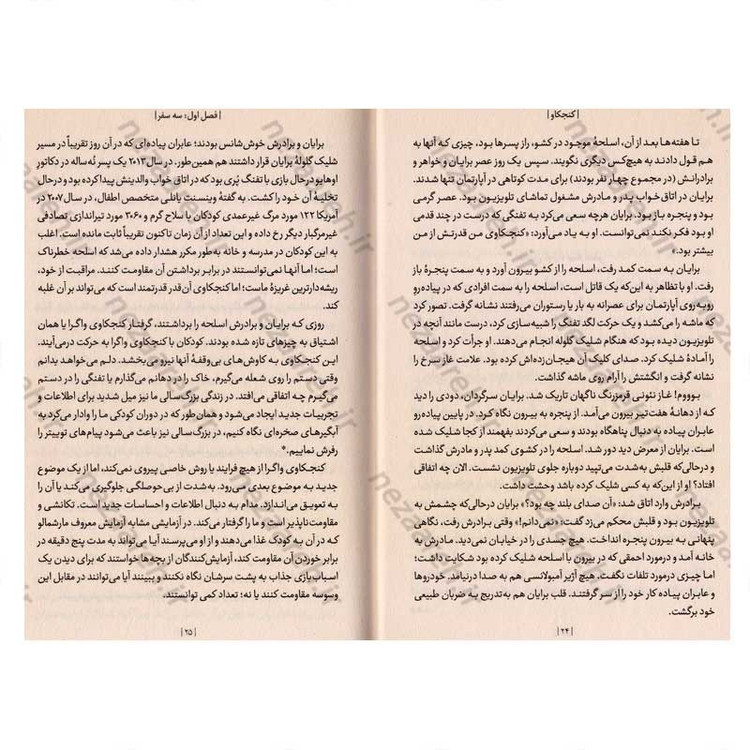 |کنجکاو|
تا هفته‌ها بعد از آن، اسلحهٔ موجود در کشو، راز پسرها بود، چیزی که آنها به
هم قول دادند به هیچ‌کس دیگری نگویند. سپس یک روز عصر برایان و خواهر و
برادرانش (در مجموع چهار نفر بودند) برای مدت کوتاهی در آپارتمان تنها شدند.
برایان در اتاق خواب پدر و مادرش مشغول تماشای تلویزیون بود. عصر گرمی
بود و پنجره باز بود. برایان هرچه سعی می‌کرد به تفنگی که درست در چند قدمی
او بود فکر نکند نمی‌توانست. او به یاد می‌آورد: «کنجکاوی من قدرتش از من
بیشتر بود.»
برایان به سمت کمد رفت، اسلحه را از کشو بیرون آورد و به سمت پنجرهٔ باز
رفت. او با تظاهر به این‌که یک قاتل است، اسلحه را به سمت افرادی که در پیاده‌رو
روبه‌روی آپارتمان برای عصرانه به بار یا رستوران می‌رفتند نشانه گرفت. تصور کرد
که ماشه را می‌کشد و یک حرکت لگد تفنگ را شبیه‌سازی کرد، درست مانند آنچه در
تلویزیون دیده بود که هنگام شلیک گلوله انجام می‌دهند. او جرأت کرد و اسلحه
را آمادهٔ شلیک کرد. صدای کلیک آن هیجان‌زده‌اش کرده بود. علامت غاز سرخ را
نشانه گرفت و انگشتش را آرام روی ماشه گذاشت.
بوووم! غاز نئونی قرمزرنگ ناگهان تاریک شد. برایان سرگردان، دودی را دید
که از دهانهٔ هفت‌تیر بیرون می‌آمد. از پنجره به بیرون نگاه کرد. در پایین پیاده‌رو
عابران پیاده به دنبال پناهگاه بودند و سعی می‌کردند بفهمند از کجا شلیک شده
است. برایان از معرض دید دور شد. اسلحه را در کشوی کمد پدر و مادرش گذاشت
و درحالی‌که قلبش به‌شدت می‌تپید دوباره جلوی تلویزیون نشست. الان چه اتفاقی
افتاد؟ او از این‌که به کسی شلیک کرده باشد وحشت داشت.
برادرش وارد اتاق شد: «آن صدای بلند چه بود؟» برایان درحالی‌که چشمش به
تلویزیون بود و قلبش محکم می‌زد گفت: «نمی‌دانم!» وقتی برادرش رفت، نگاهی
پنهانی به بیرون پنجره انداخت. هیچ جسدی را در خیابان نمی‌دید. مادرش به
خانه آمد و درمورد احمقی که در بیرون با اسلحه شلیک کرده بود شکایت داشت؛
اما چیزی درمورد تلفات نگفت. هیچ آژیر آمبولانسی هم به صدا درنیامد. خودروها
و عابران پیاده کار خود را از سر گرفتند. قلب برایان هم به‌تدریج به ضربان طبیعی
خود برگشت.
|۲۴|
|فصل اول: سه سفر|
برایان و برادرش خوش‌شانس بودند؛ عابران پیاده‌ای که در آن روز تقریباً در مسیر
شلیک گلولهٔ برایان قرار داشتند هم همین‌طور. در سال ۲۰۱۳ یک پسر نُه‌ساله در دکاتور
اوهایو درحال بازی با تفنگ پُری بود که در اتاق خواب والدینش پیدا کرده بود و درحال
تخلیهٔ آن خود را کشت. به گفتهٔ وینسنت یانلی متخصص اطفال، در سال ۲۰۰۷ در
آمریکا ۱۲۲ مورد مرگ غیرعمدی کودکان با سلاح گرم و ۲۰۶۰ مورد تیراندازی تصادفی
غیرمرگبار دیگر رخ داده و این تعداد از آن زمان تاکنون تقریباً ثابت مانده است. اغلب
به این کودکان در مدرسه و خانه به‌طور مکرر هشدار داده می‌شد که اسلحه خطرناک
است؛ اما آنها نمی‌توانستند در برابر برداشتن آن مقاومت کنند. مراقبت از خود،
ریشه‌دارترین غریزهٔ ماست؛ اما کنجکاوی آن‌قدر قدرتمند است که می‌تواند بر آن غلبه
کند.
روزی که برایان و برادرش اسلحه را برداشتند، گرفتار کنجکاوی واگرا یا همان
اشتیاق به چیزهای تازه شده بودند. کودکان با کنجکاوی واگرا به حرکت درمی‌آیند.
این کنجکاوی به کاوش‌های بی‌وقفهٔ آنها نیرو می‌بخشد. دلم می‌خواهد بدانم
وقتی دستم را روی شعله می‌گیرم، خاک را در دهانم می‌گذارم یا تفنگی را در دستم
می‌گیرم چه اتفاقی می‌افتد. در زندگی بزرگ‌سالی ما نیز میل شدید برای اطلاعات و
تجربیات جدید ایجاد می‌شود و همان‌طور که در دوران کودکی ما را وادار می‌کرد به
آبگیرهای صخره‌ای نگاه کنیم، در بزرگ‌سالی نیز باعث می‌شود پیام‌های توییتر را
رفرش نماییم.*
کنجکاوی واگرا از هیچ فرایند یا روش خاصی پیروی نمی‌کند، اما از یک موضوع
جدید به موضوع بعدی می‌رود. به‌شدت از بی‌حوصلگی جلوگیری می‌کند یا آن را
به تعویق می‌اندازد. مدام به دنبال اطلاعات و احساسات جدید است. تکانشی و
مقاومت‌ناپذیر است و ما را گرفتار می‌کند. در آزمایشی مشابه آزمایش معروف مارشمالو
که در آن به کودک غذا می‌دهند و از او می‌پرسند آیا می‌تواند به مدت پنج دقیقه در
برابر خوردن آن مقاومت کند، آزمایش‌کنندگان از بچه‌ها خواستند که برای دیدن یک
اسباب‌بازی جذاب به پشت سرشان نگاه نکنند و ببینند آیا می‌توانند در مقابل این
وسوسه مقاومت کنند یا نه؛ تعداد کمی توانستند.
|۲۵|
nezaareh.ir